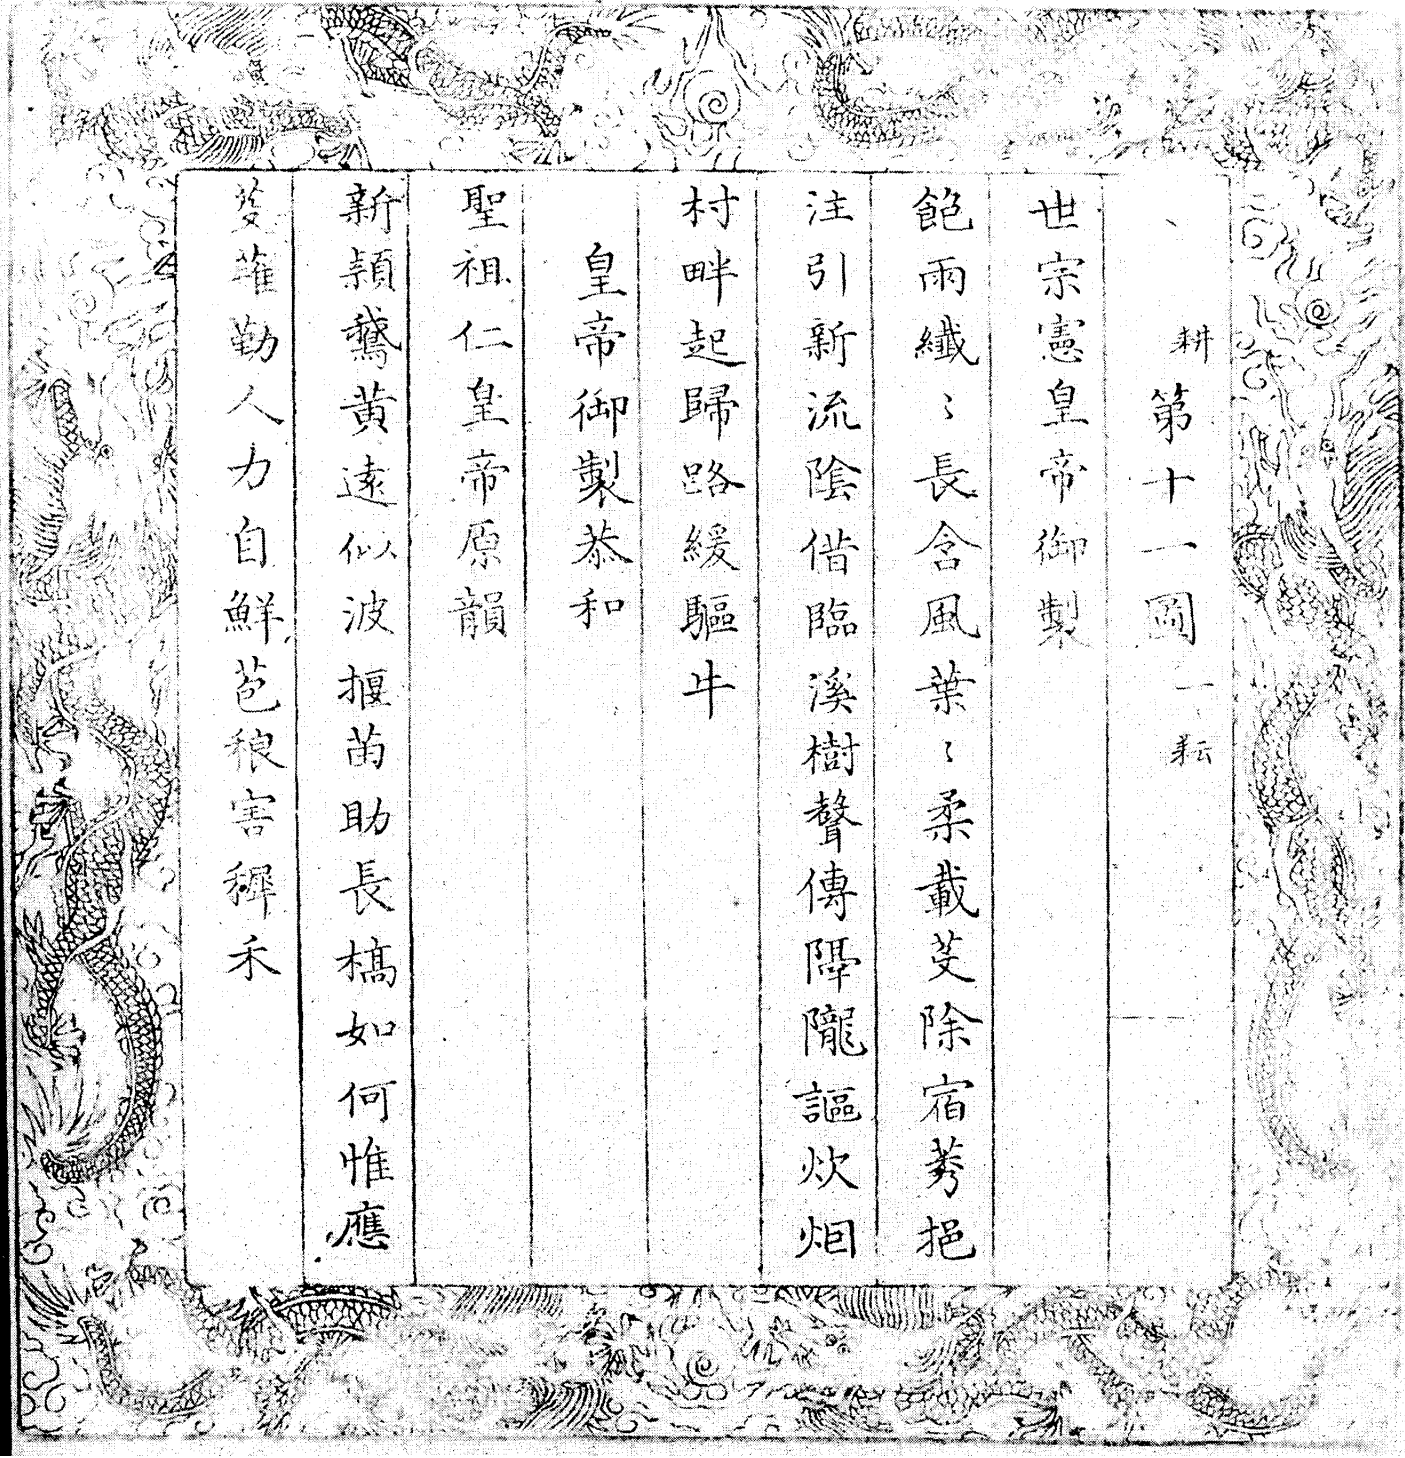 耕 第十一圖 一耘
世宗憲皇帝御製
飽雨纖〻長含風葉〻柔載芟除宿莠挹
注引新流陰借臨溪樹聲傳隔隴謳炊烟
村畔起歸路緩驅牛
皇帝御製恭和
聖祖仁皇帝原韻
新穎鵞黃遠似波揠苗助長槁如何惟應
芟薙勤人力自鮮苞稂害穉禾